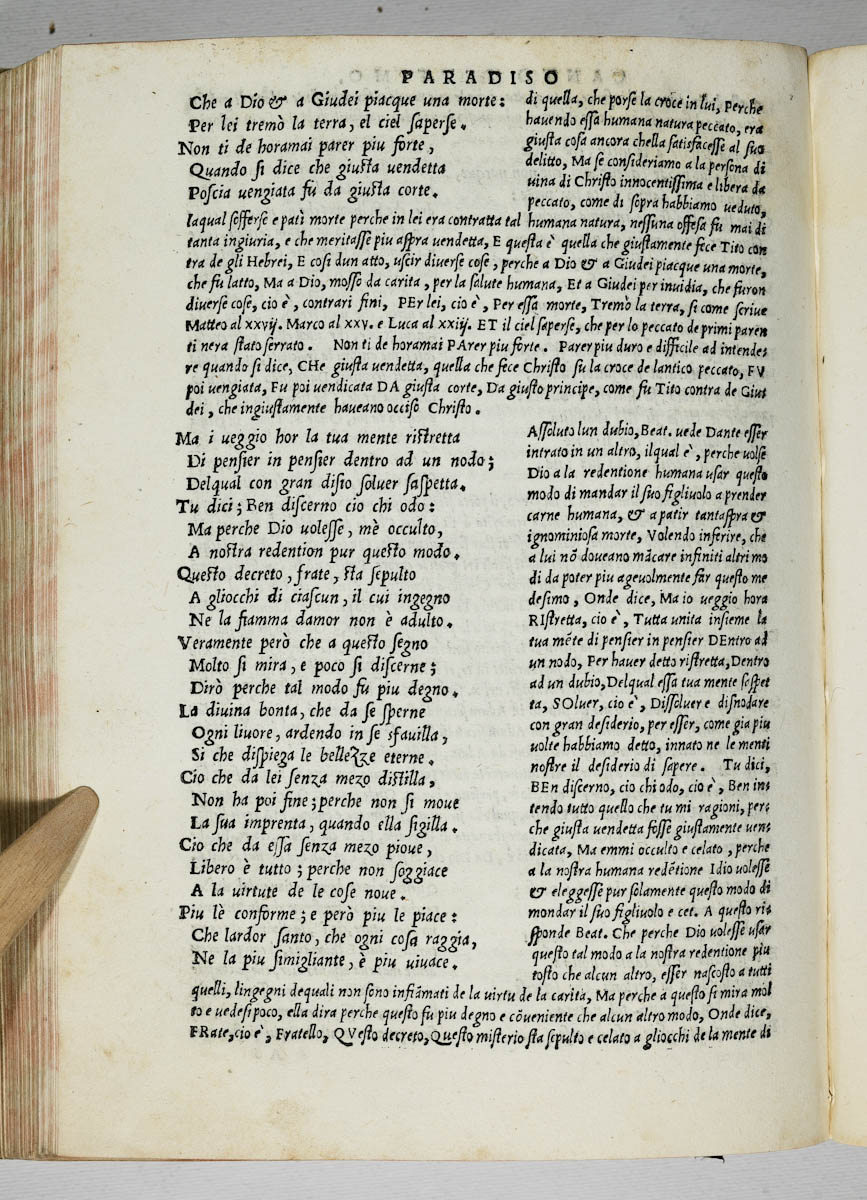 PARADISO
Che a Dio & a Giudei piacque una morte:
Per lei tremò la terra, el ciel saperse.
Non ti de horamai parer piu forte,
Quando si dice che giusta uendetta
Poscia uengiata fu da giusta corte.
di quella, che porse la croce in lui, Perche
hauendo essa humana natura peccato, era
giusta cosa ancora chella satisfacesse al suo
delitto, Ma se consideriamo a la persona di
uina di Christo innocentissima e libera da
peccato, come di sopra habbiamo ueduto,
laqual sofferse e patì morte perche in lei era contratta tal humana natura, nessuna offesa fu mai di
tanta ingiuria, e che meritasse piu aspra uendetta, E questa è quella che giustamente fece Tito con
tra de gli Hebrei, E cosi dun atto, uscir diuerse cose, perche a Dio & a Giudei piacque una morte,
che fu latto, Ma a Dio, mosso da carita, per la salute humana, Et a Giudei per inuidia, che furon
diuerse cose, cio è, contrari fini, PEr lei, cio è, Per essa morte, Tremò la terra, si come scriue
Matteo al xxvij. Marco al xxv. e Luca al xxiij. ET il ciel saperse, che per lo peccato de primi paren
ti nera stato serrato. Non ti de horamai PArer piu forte. Parer piu duro e difficile ad intende=
re quando si dice, CHe giusta uendetta, quella che fece Christo su la croce de lantico peccato, FV
poi uengiata, Fu poi uendicata DA giusta corte, Da giusto principe, come fu Tito contra de Giu=
dei, che ingiustamente haueano occiso Christo.
Ma i ueggio hor la tua mente ristretta
Di pensier in pensier dentro ad un nodo;
Delqual con gran disio soluer saspetta.
Tu dici; Ben discerno cio chi odo:
Ma perche Dio uolesse, mè occulto,
A nostra redention pur questo modo.
Questo decreto, frate, sta sepulto
A gliocchi di ciascun, il cui ingegno
Ne la fiamma damor non è adulto.
Veramente però che a questo segno
Molto si mira, e poco si discerne;
Dirò perche tal modo fu piu degno.
La diuina bonta, che da se sperne
Ogni liuore, ardendo in se sfauilla,
Si che dispiega le bellezze eterne.
Cio che da lei senza mezo distilla,
Non ha poi fine; perche non si moue
La sua imprenta, quando ella sigilla.
Cio che da essa senza mezo pioue,
Libero è tutto; perche non soggiace
A la uirtute de le cose noue.
Piu lè conforme; e però piu le piace:
Che lardor santo, che ogni cosa raggia,
Ne la piu simigliante, è piu uiuace.
Assoluto lun dubio, Beat. uede Dante esser
intrato in un altro, ilqual è, perche uolse
Dio a la redentione humana usar questo
modo di mandar il suo figliuolo a prender
carne humana, & a patir tantaspra &
ignominiosa morte, Volendo inferire, che
a lui nō doueano mācare infiniti altri mo
di da poter piu ageuolmente far questo me
desimo, Onde dice, Ma io ueggio hora
RIstretta, cio è, Tutta unita insieme la
tua mēte di pensier in pensier DEntro ad
un nodo, Per hauer detto ristretta, Dentro
ad un dubio, Delqual essa tua mente sespet
ta, SOluer, cio è, Dissoluer e disnodare
con gran desiderio, per esser, come gia piu
uolte habbiamo detto, innato ne le menti
nostre il desiderio di sapere. Tu dici,
BEn discerno, cio chi odo, cio è, Ben in=
tendo tutto quello che tu mi ragioni, per=
che giusta uendetta fosse giustamente uen=
dicata, Ma emmi occulto e celato, perche
a la nostra humana redētione Idio uolesse
& eleggesse pur solamente questo modo di
mondar il suo figliuolo e cet. A questo ri=
sponde Beat. Che perche Dio uolesse usar
questo tal modo a la nostra redentione piu
tosto che alcun altro, esser nascosto a tutti
quelli, lingegni dequali non sono infiāmati de la uirtu de la carità, Ma perche a questo si mira mol
to e uedesi poco, ella dira perche questo fu piu degno e cōueniente che alcun altro modo, Onde dice,
FRate, cio è, Fratello, QVesto decreto, Questo misterio sta sepulto e celato a gliocchi de la mente di